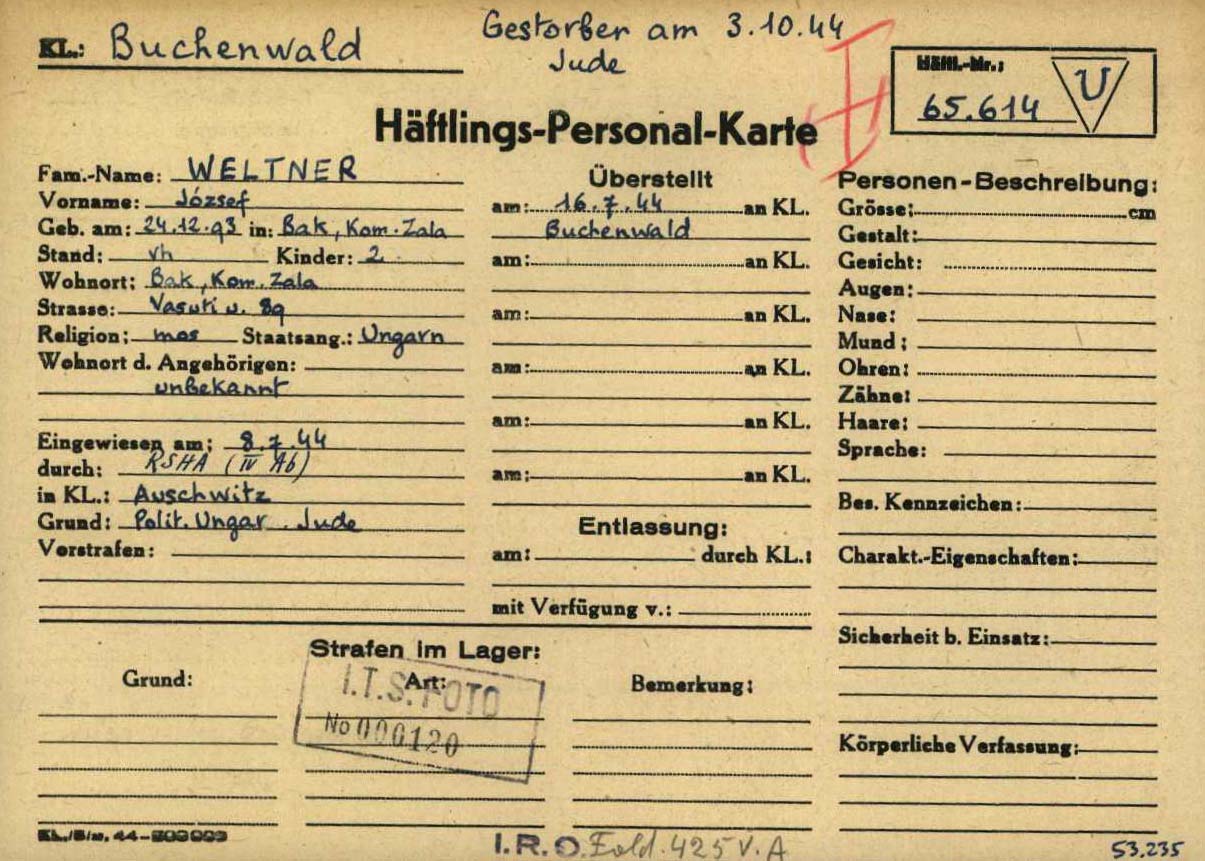 KL.: Buchenwald
Gestorben am 3.10.44
Jude
Häftl.-Nr.:
65.614
U
Häftlings-Personal-Karte
Fam.-Name: WELTNER
Vorname: József
Geb. am: 24.12.93 in: Bak, Kom. Zala
Stand: vh Kinder: 2
Wohnort: Bak, Kom. Zala
Strasse: Vasuti u. 89
Religion: mos Staatsang.: Ungarn
Wohnort d. Angehörigen:
unbekannt
Eingewiesen am: 8.7.44
durch: RSHA (IV A6)
in KL.: Auschwitz
Grund: Polit. Ungar. Jude
Vorstrafen:
Überstellt
am: 16.7.44 an KL.
Buchenwald
am: an KL.
am: an KL.
am: an KL.
am: an KL.
am: an KL.
Entlassung:
am: durch KL.:
mit Verfügung v.:
Personen-Beschreibung:
Grösse: cm
Gestalt:
Gesicht:
Augen:
Nase:
Mund:
Ohren:
Zähne:
Haare:
Sprache:
Bes. Kennzeichen:
Charakt.-Eigenschaften:
Sicherheit b. Einsatz:
Körperliche Verfassung:
Strafen im Lager:
Grund: Art: Bemerkung:
I.T.S. FOTO
No 000120
I.R.O. 425 V.A
53.235